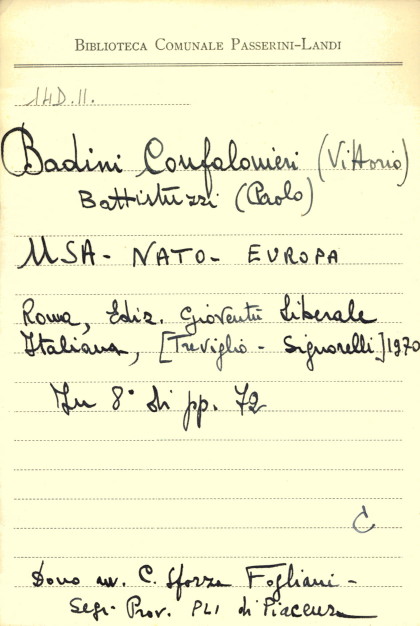 BIBLIOTECA COMUNALE PASSERINI-LANDI
14D.II.
Badini Confalonieri (Vittorio)
Battistuzzi (Paolo)
USA - NATO - EUROPA
Roma, Ediz. Gioventù Liberale
Italiana, [Treviglio - Signorelli] 1970
In 8° di pp. 72
C
Dono avv. C. Sforza Fogliani -
Segr. Prov. PLI di Piacenza